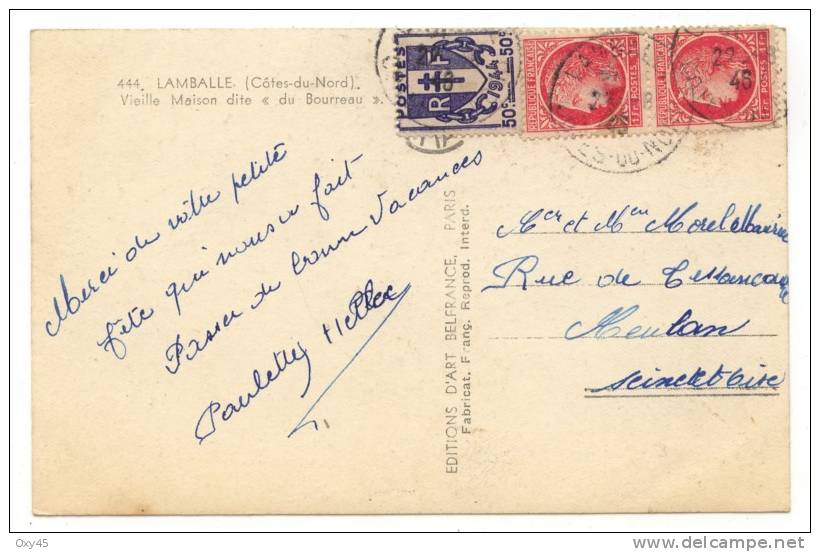 444. LAMBALLE (Côtes-du-Nord).
Vieille Maison dite « du Bourreau ».
POSTES RF 1944 50c 50c
REPUBLIQUE FRANÇAISE 1Fr. POSTES 1Fr.
REPUBLIQUE FRANÇAISE 1Fr. POSTES 1Fr.
22
46
ES-DU-NO
Merci de vôtre petite
fête qui nous a fait
Passer de bonnes Vacances
Paulette
EDITIONS D'ART BELFRANCE, PARIS
Fabricat. Franç. Reprod. Interd.
Mr et Me Morel Maurice
Rue de Tessancourt
Meulan
Seine et Oise
Oxy45
delcampe.net